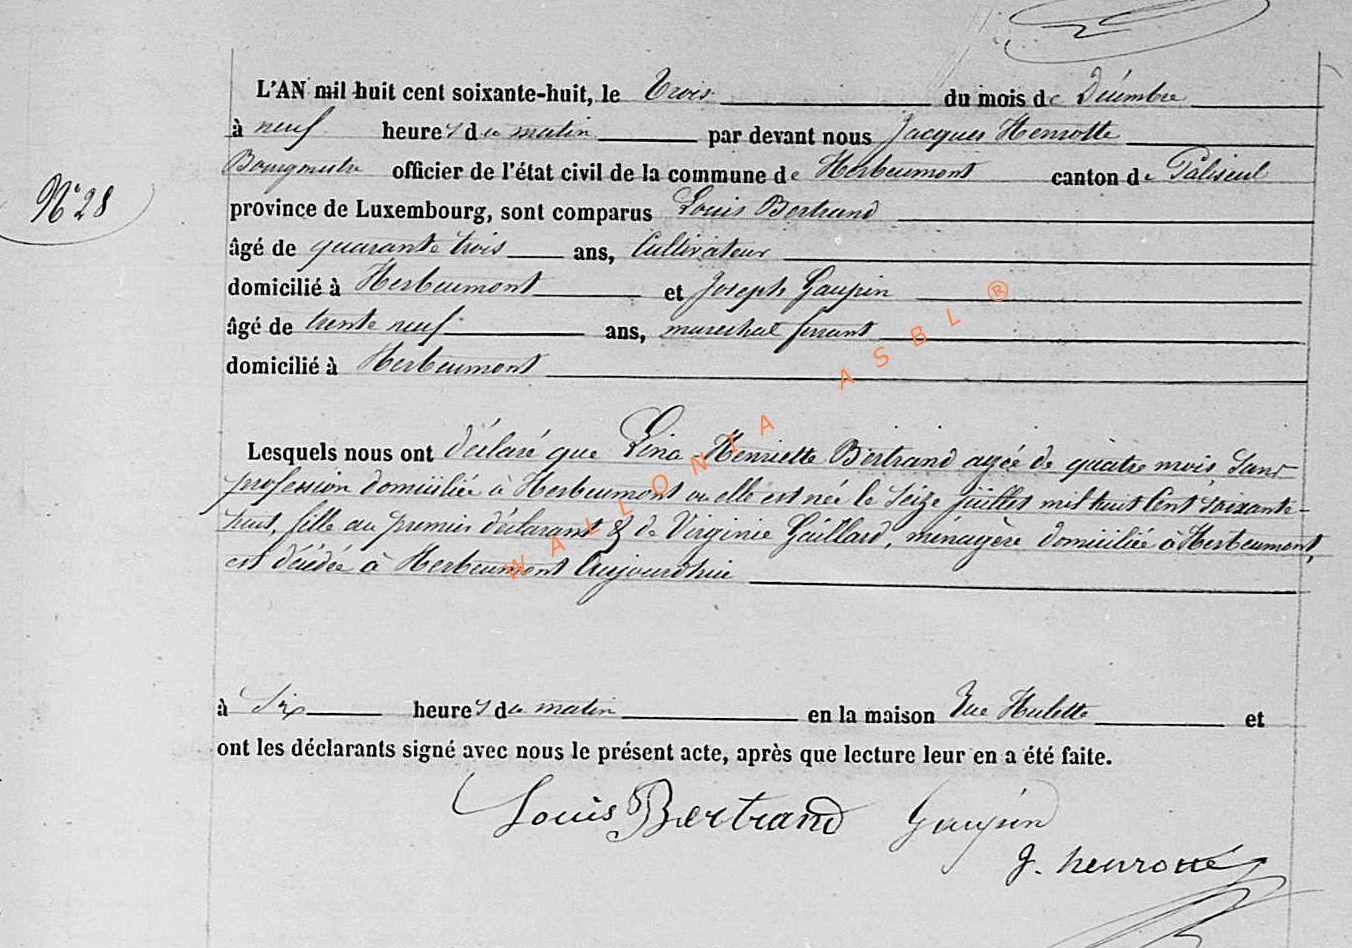 L'AN mil huit cent soixante-huit, le trois du mois de Décembre
à neuf heures du matin par devant nous Jacques Henrotte
Bourgmestre officier de l'état civil de la commune de Herbeumont canton de Paliseul
N° 28
province de Luxembourg, sont comparus Louis Bertrand
âgé de quarante trois ans, Cultivateur
domicilié à Herbeumont et Joseph Gaupin
âgé de trente neuf ans, marechal ferrant
domicilié à Herbeumont
Lesquels nous ont déclaré que Lina Henriette Bertrand agée de quatre mois, Sans
profession domiciliée à Herbeumont ou elle est née le Seize Juillet mil huit Cent Soixante-
huit, fille au premier déclarant & de Virginie Gaillard, ménagère domiciliée à Herbeumont,
est décédée à Herbeumont Aujourdhui
à Six heures du matin en la maison Rue Hulette et
ont les déclarants signé avec nous le présent acte, après que lecture leur en a été faite.
Louis Bertrand Gaupin
J. henrotte
WALLONIA ASBL ®